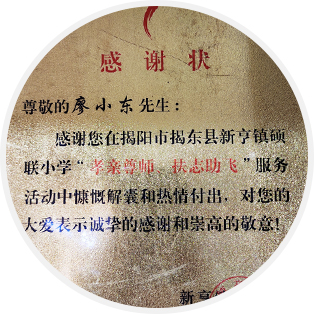 感谢状
尊敬的廖小东先生：
感谢您在揭阳市揭东县新亨镇硕
联小学“孝亲尊师、扶志助飞”服务
活动中慷慨解囊和热情付出，对您的
大爱表示诚挚的感谢和崇高的敬意！
新亨